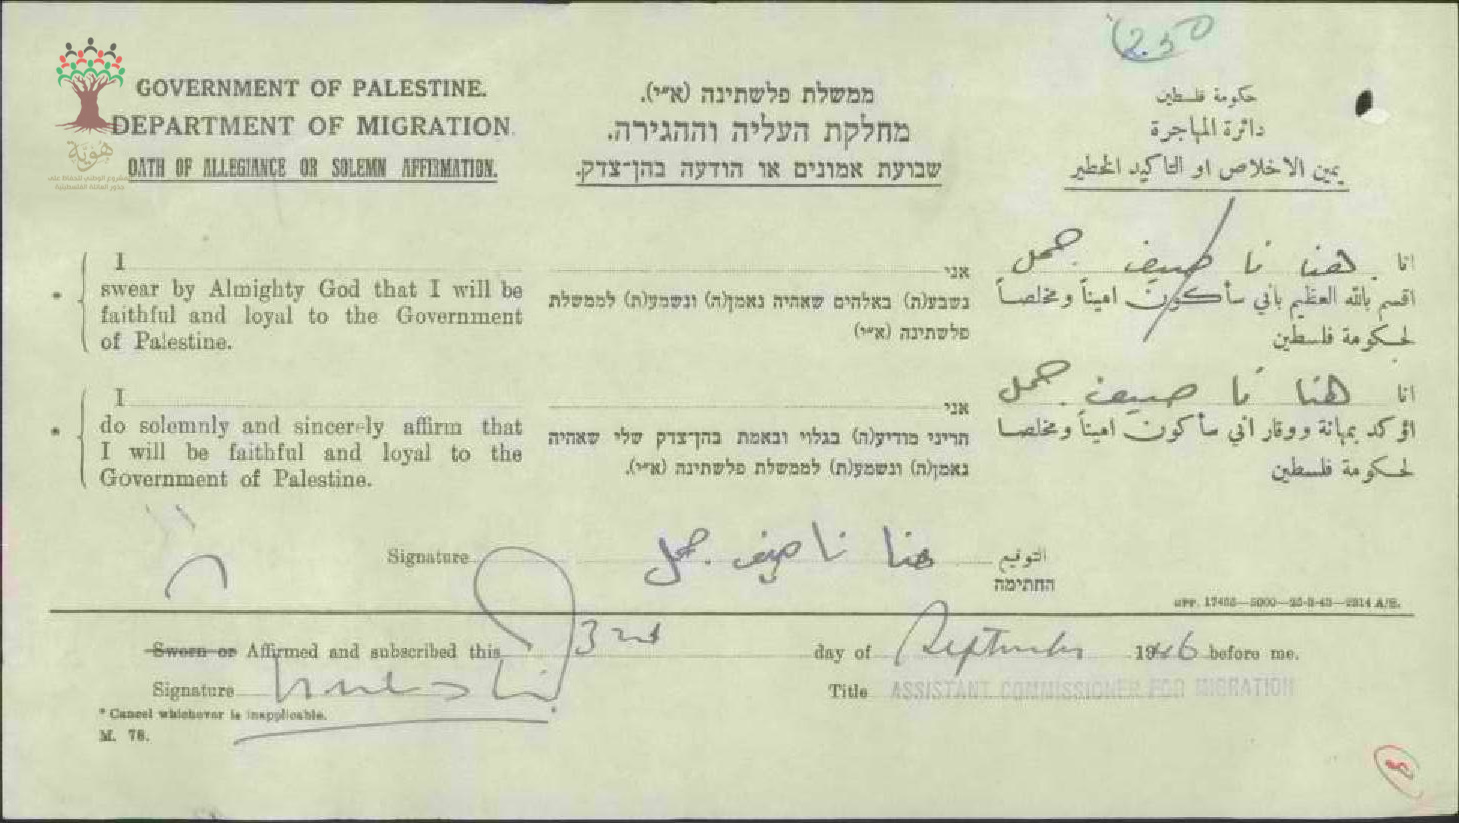 GOVERNMENT OF PALESTINE.
DEPARTMENT OF MIGRATION.
OATH OF ALLEGIANCE OR SOLEMN AFFIRMATION.
ממשלת פלשתינה (א״י).
מחלקת העליה וההגירה.
שבועת אמונים או הודעה בהן־צדק.
حكومة فلسطين
دائرة المهاجرة
يمين الاخلاص او التاكيد الخطير
هوية
I
swear by Almighty God that I will be
faithful and loyal to the Government
of Palestine.
אני
נשבע(ה) באלהים שאהיה נאמן(ה) ונשמע(ת) לממשלת
פלשתינה (א״י)
انا هنا نا صيف جمل
اقسم بالله العظيم باني سأكون اميناً ومخلصاً
لحكومة فلسطين
I
do solemnly and sincerely affirm that
I will be faithful and loyal to the
Government of Palestine.
אני
הריני מודיע(ה) בגלוי ובאמת בהן־צדק שלי שאהיה
נאמן(ה) ונשמע(ת) לממשלת פלשתינה (א״י).
انا هنا نا صيف جمل
اؤكد بمهانة ووقار اني سأكون اميناً ومخلصا
لحكومة فلسطين
Signature هنا ناصيف جمل التوقيع
החתימה
Sworn or Affirmed and subscribed this 3rd day of September 1946 before me.
Signature
Title ASSISTANT COMMISSIONER FOR MIGRATION
* Cancel whichever is inapplicable.
M. 78.